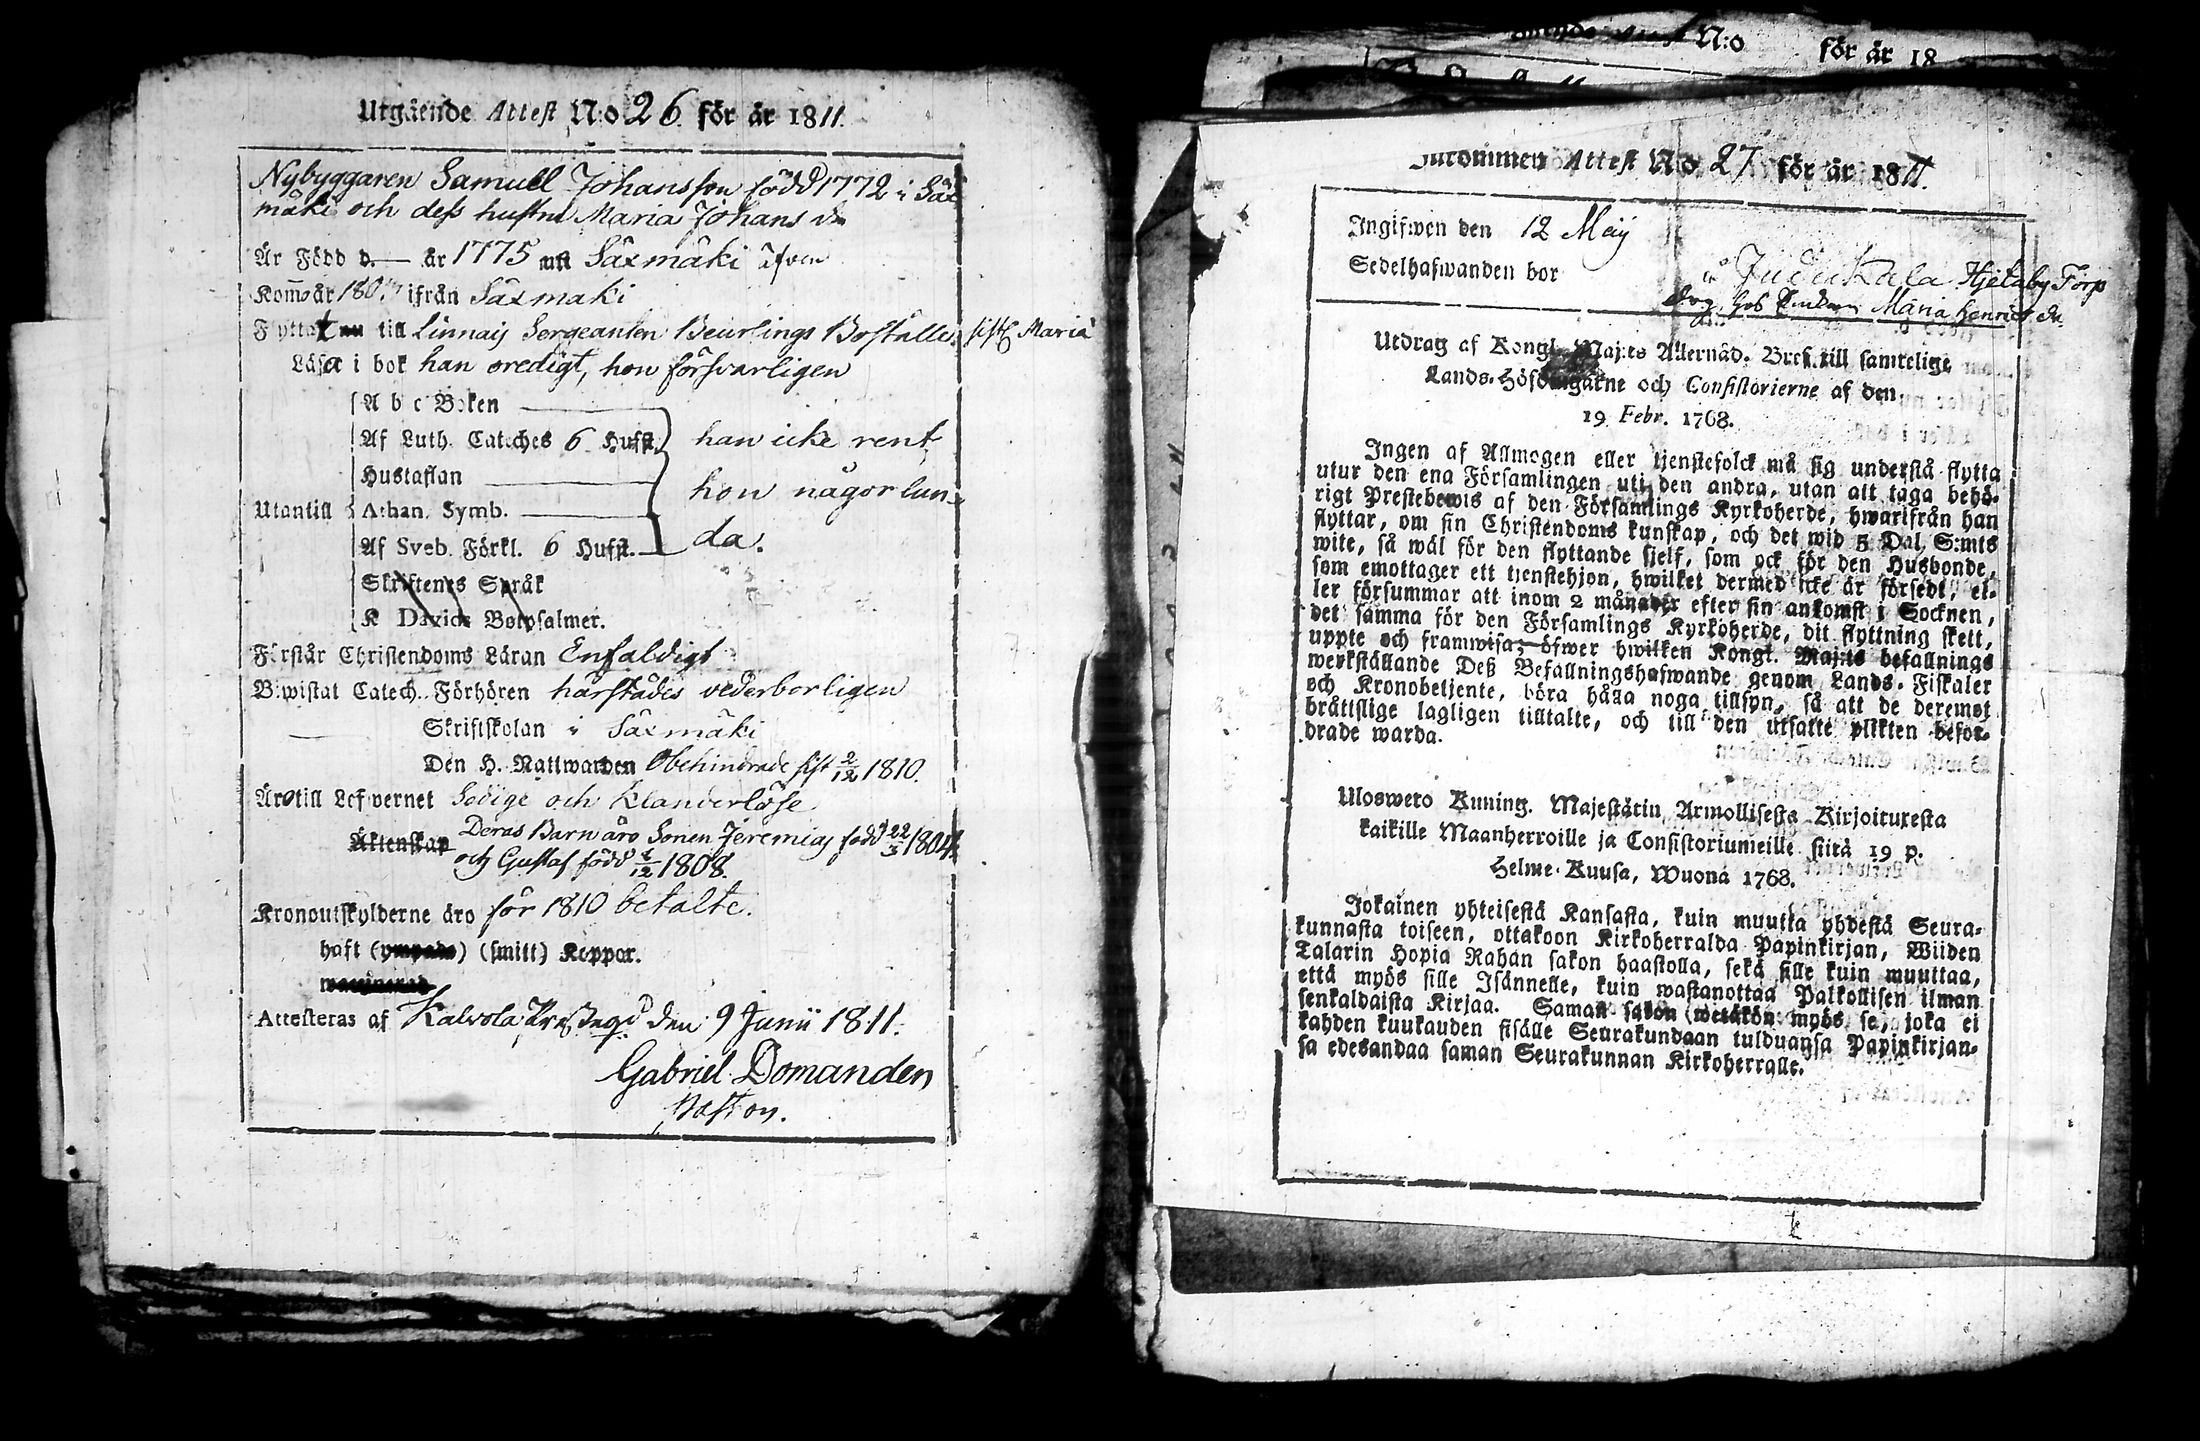 Utgående Attest N:o 26. för år 1811.
Nybyggaren Samuel Johansson född 1772 i Säx
mäki och dess hustru Maria Johans dr
Är Född d. — år 1775 uti Säxmäki äfven
Kom̄o år 180 ifrån Säxmäki
Flytta till Linnais Sergeanten Beurlings Boställe. Maria
Läsa i bok han oredigt, hon försvarligen
A b c Boken
Af Luth. Cateches 6 Hufst. han icke rent,
Hustaflan hon någorlun-
Utantill Athan. Symb.
Af Sveb. Förkl. 6 Hufst. da.
Skriftenes Språk
K Davids Botpsalmer.
Förstår Christendoms Läran Enfaldigt
Bewistat Catech. Förhören härstädes vederborligen
Skriftskolan i Säxmäki
Den H. Nattwarden Obehindrade sist 2/12 1810.
Äro till Lefwernet Sedige och Klanderlöse
Äktenskap Deras Barn äro Sonen Jeremias född 22/3 1804.
och Gustaf född 1/12 1808.
Kronoutskylderne äro för 1810 betalte.
haft (ympade) (smitt) Koppor.
Attesteras af Kalvola Prestegd den 9 Junii 1811.
Gabriel Domanden
Pastor.
N:o för år 18
Inkommen Attest N:o 27 för år 1811.
Ingifwen den 12 Maij
Sedelhafwanden bor å Judikkala Hjelaby Torp
Maria Henrics dr.
Utdrag af Kongl. Maj:ts Allernåd. Bref till samtelige
Lands-Höfdingarne och Consistorierne af den
19 Febr. 1768.
Ingen af Allmogen eller tjenstefolck må sig understå flytta
utur den ena Församlingen uti den andra, utan att taga behö-
rigt Prestebewis af den Församlings Kyrkoherde, hwarifrån han
flyttar, om sin Christendoms kunskap, och det wid 5 Dal. S:mts
wite, så wäl för den flyttande sjelf, som ock för den Husbonde,
som emottager ett tjenstehjon, hwilket dermed icke är försedt, el-
ler försummar att inom 2 månader efter sin ankomst i Socknen,
det samma för den Församlings Kyrkoherde, dit flyttning skett,
uppte och framwisa; öfwer hwilken Kongl. Maj:ts befallnings
werkställande Deß Befallningshafwande genom Lands-Fiskaler
och Kronobetjente, böra hålla noga tillsyn, så att de deremot
bråttslige lagligen tilltalte, och till den utsatte plikten befor-
drade warda.
Uloswetö Kuning. Majestätin Armollisesta Kirjoituxesta
kaikille Maanherroille ja Consistoriumeille siitä 19 p.
Helme-Kuusa, Wuona 1768.
Jokainen yhteisestä Kansasta, kuin muutta yhdestä Seura-
kunnasta toiseen, ottakoon Kirkoherralda Papinkirjan, Wiiden
Talarin Hopia Rahan sakon haastolla, sekä sille kuin muuttaa,
että myös sille Isännelle, kuin wastanottaa Palkollisen ilman
senkaldaista Kirjaa. Saman sakon wetäkön myös se, joka ei
kahden kuukauden sisälle Seurakundaan tulduansa Papinkirjan-
sa edesandaa saman Seurakunnan Kirkoherralle.